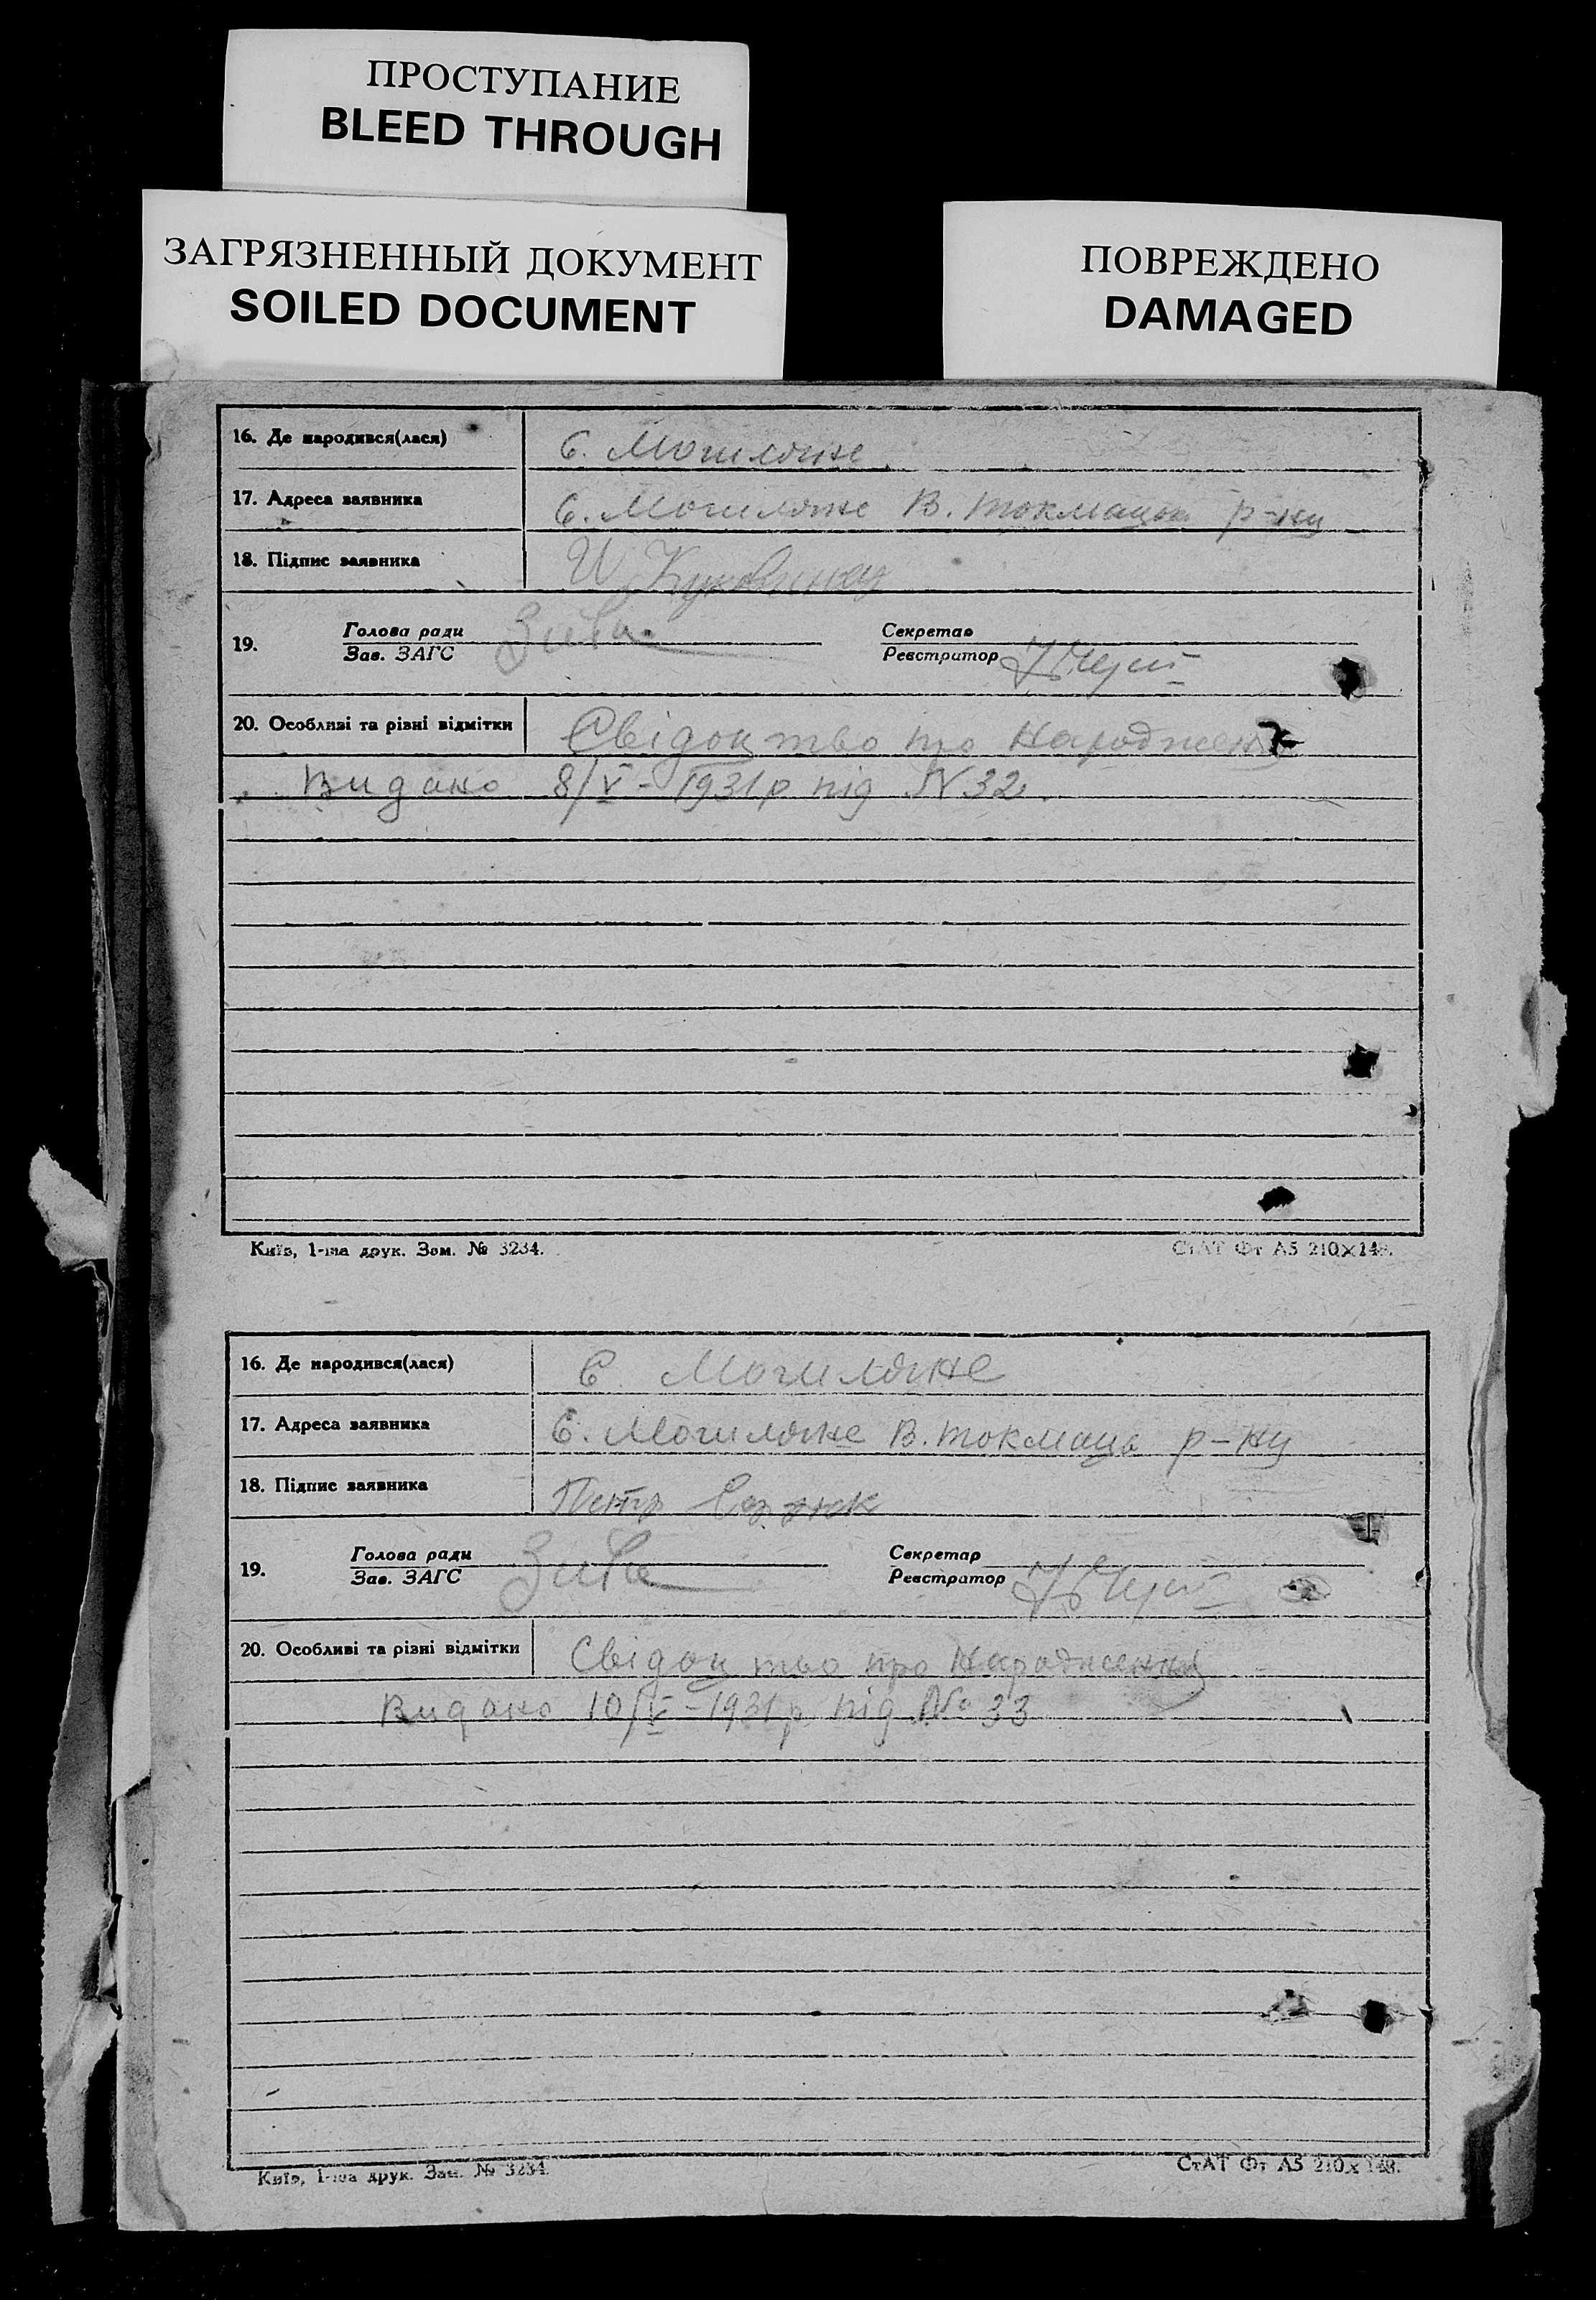 ПРОСТУПАНИЕ
BLEED THROUGH
ЗАГРЯЗНЕННЫЙ ДОКУМЕНТ
SOILED DOCUMENT
ПОВРЕЖДЕНО
DAMAGED
16. Де народився(лася) С. Могиляне
17. Адреса заявника С. Могиляне В. Токмацьк р-ну
18. Підпис заявника
19. Голова ради Секретар
Зав. ЗАГС Реєстратор
20. Особливі та різні відмітки Свідоцтво про народження
Видано 8/V-1931р. під N 32.
Київ, 1-ша друк. Зам. № 3234. СтАТ Фт А5 210×148.
16. Де народився(лася) С. Могиляне
17. Адреса заявника С. Могиляне В. Токмаць р-ну
18. Підпис заявника Петр
19. Голова ради Секретар
Зав. ЗАГС Реєстратор
20. Особливі та різні відмітки Свідоцтво про народження
Видано 10/V-1931р. під № 33
Київ, 1-ша друк. Зам. № 3234. СтАТ Фт А5 210×148.